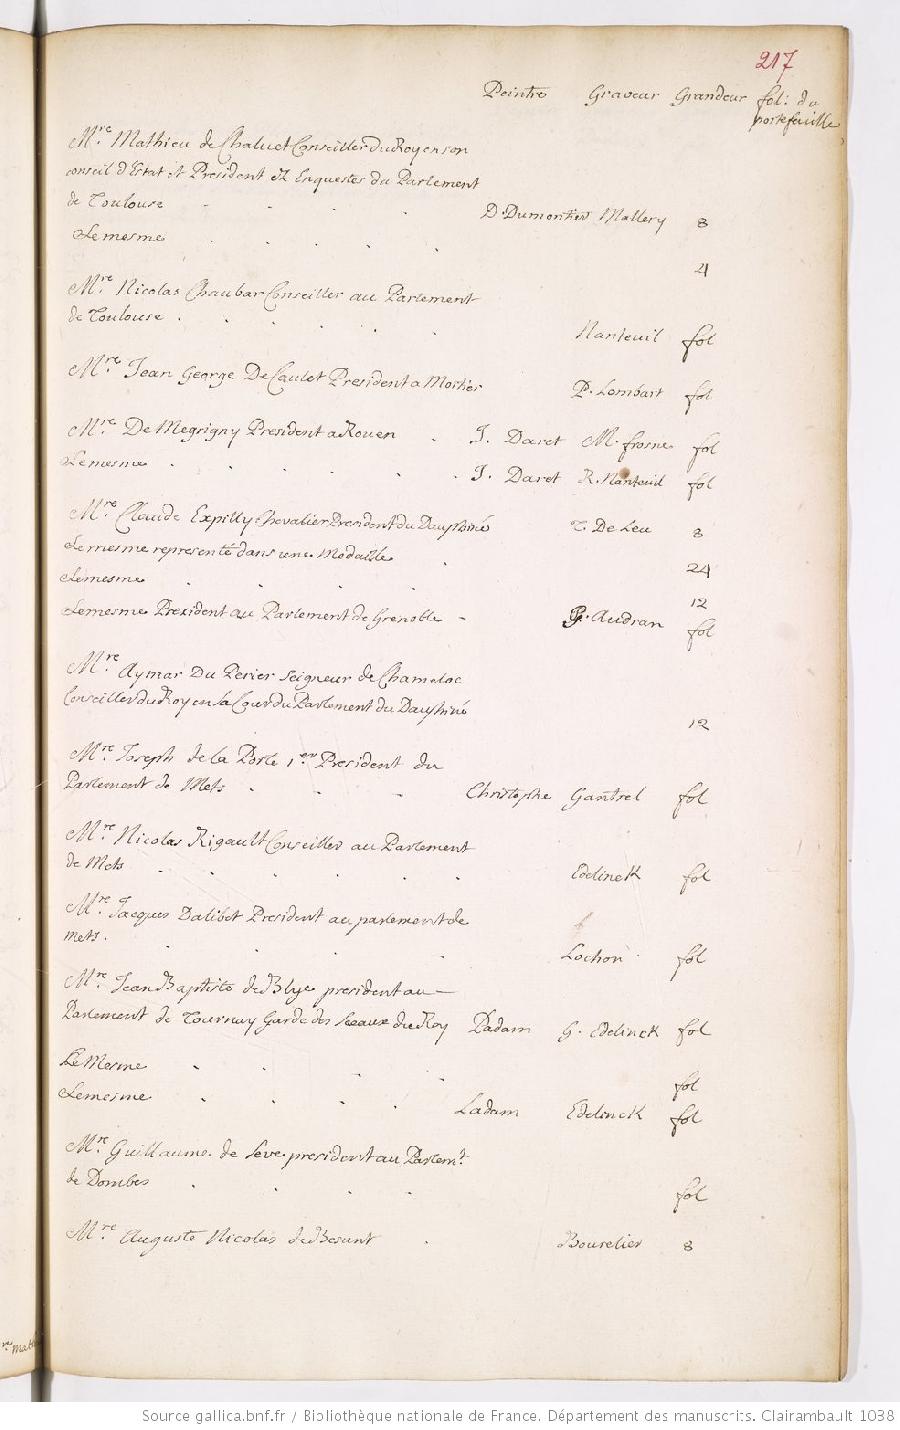 217
Peintre Graveur Grandeur fol: du
portefeuille
Mre. Mathieu de Chaluet Conseiller du Roy en son
conseil d'Estat et President ez Enquestes du Parlement
de Toulouse D. Dumontier Mallery 8
Lemesme 4
Mre. Nicolas Chaubar Conseiller au Parlement
de Toulouse Nanteuil fol
Mre. Jean George De Caulet President a Mortier P. Lombart fol
Mre. De Megrigny President a Rouen J. Daret M. frosne fol
Lemesme J. Daret R. Nanteuil fol
Mre. Claude Expilly Chevalier President du Dauphiné T. De Leu 8
Lemesme representé dans une Modaille 24
Lemesme 12
Lemesme President au Parlement de Grenoble Audran fol
Mre. Aymar Du Perier Seigneur de Chameloc
Conseiller du Roy en la Cour du Parlement du Dauphiné 12
Mre. Joseph de la Porte 1er. President du
Parlement de Mets Christophe Gantrel fol
Mre. Nicolas Rigault Conseiller au Parlement
de Mets Edelinck fol
Mre. Jacques Dalibet President au parlement de
mets. Lochon fol
Mre. Jean Baptiste de Blye president au
Parlement de Tournay Garde des Seaux du Roy Ladam G. Edelinck fol
Le Mesme fol
Lemesme Ladam Edelinck fol
Mre. Guillaume de Seve president au Parlemt.
de Dombes fol
Mre. Auguste Nicolas de Besant Bourelier 8
Source gallica.bnf.fr / Bibliothèque nationale de France. Département des manuscrits. Clairambault 1038